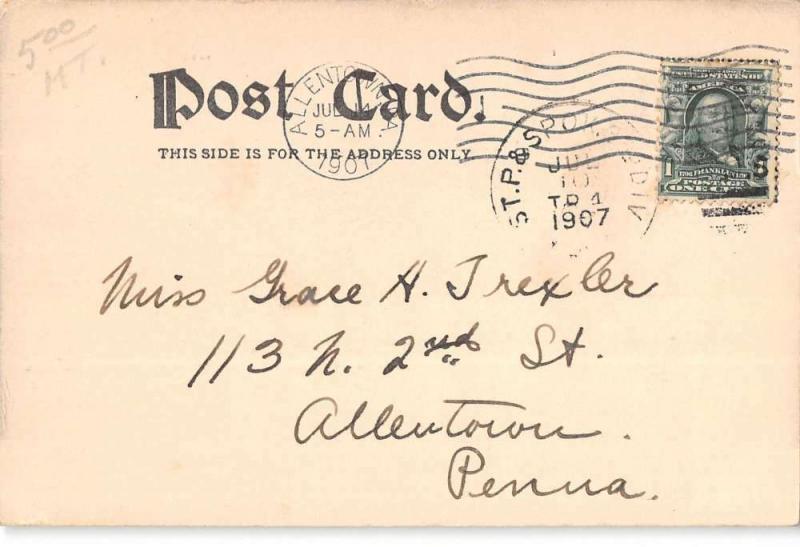 5.00
MT.
Post Card.
THIS SIDE IS FOR THE ADDRESS ONLY.
ALLENTOWN, PA
JUL 14
5-AM
1907
ST. P. & SPOK
JUL
10
TR 4
1907
UNITED STATES OF
AMERICA
1 FRANKLIN
POSTAGE
ONE CENT
Miss Grace H. Trexler
113 N. 2nd St.
Allentown.
Penna.